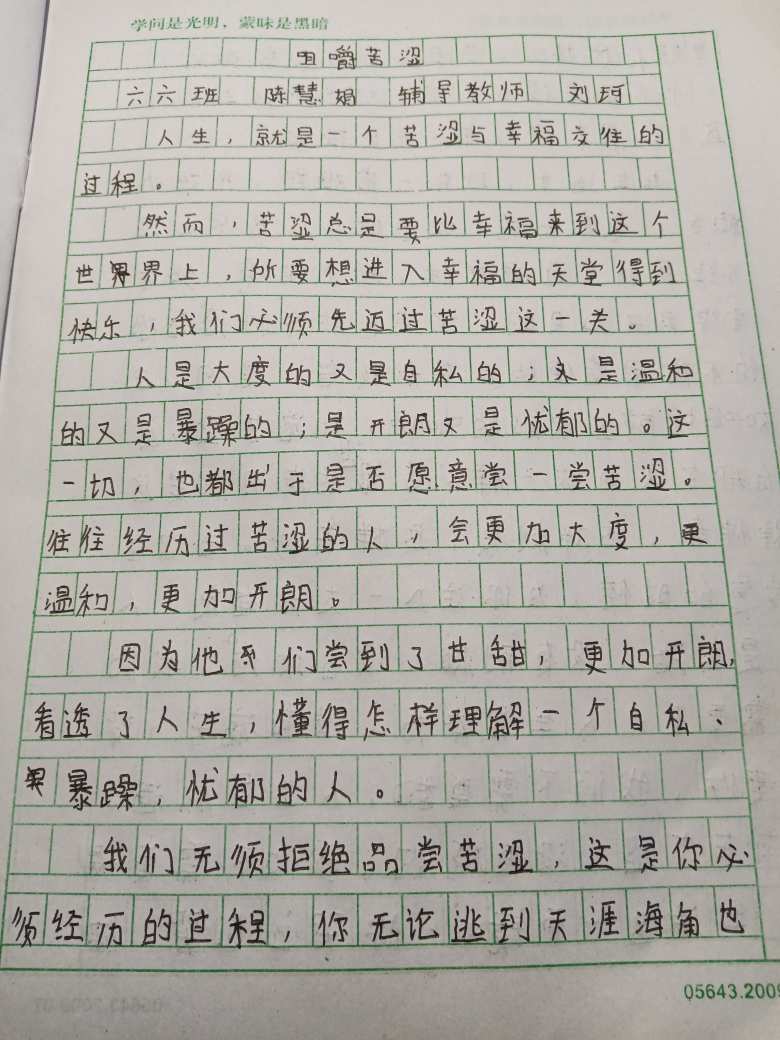 学问是光明，蒙昧是黑暗
咀嚼苦涩
六六班 陈慧娟 辅导教师 刘珂
人生，就是一个苦涩与幸福交往的
过程。
然而，苦涩总是要比幸福来到这个
世界上，所要想进入幸福的天堂得到
快乐，我们必须先迈过苦涩这一关。
人是大度的又是自私的；又是温和
的又是暴躁的；是开朗又是忧郁的。这
一切，也都出于是否愿意尝一尝苦涩。
往往经历过苦涩的人，会更加大度，更
温和，更加开朗。
因为他们尝到了甘甜，更加开朗，
看透了人生，懂得怎样理解一个自私、
暴躁，忧郁的人。
我们无须拒绝品尝苦涩，这是你必
须经历的过程，你无论逃到天涯海角也
05643.2009